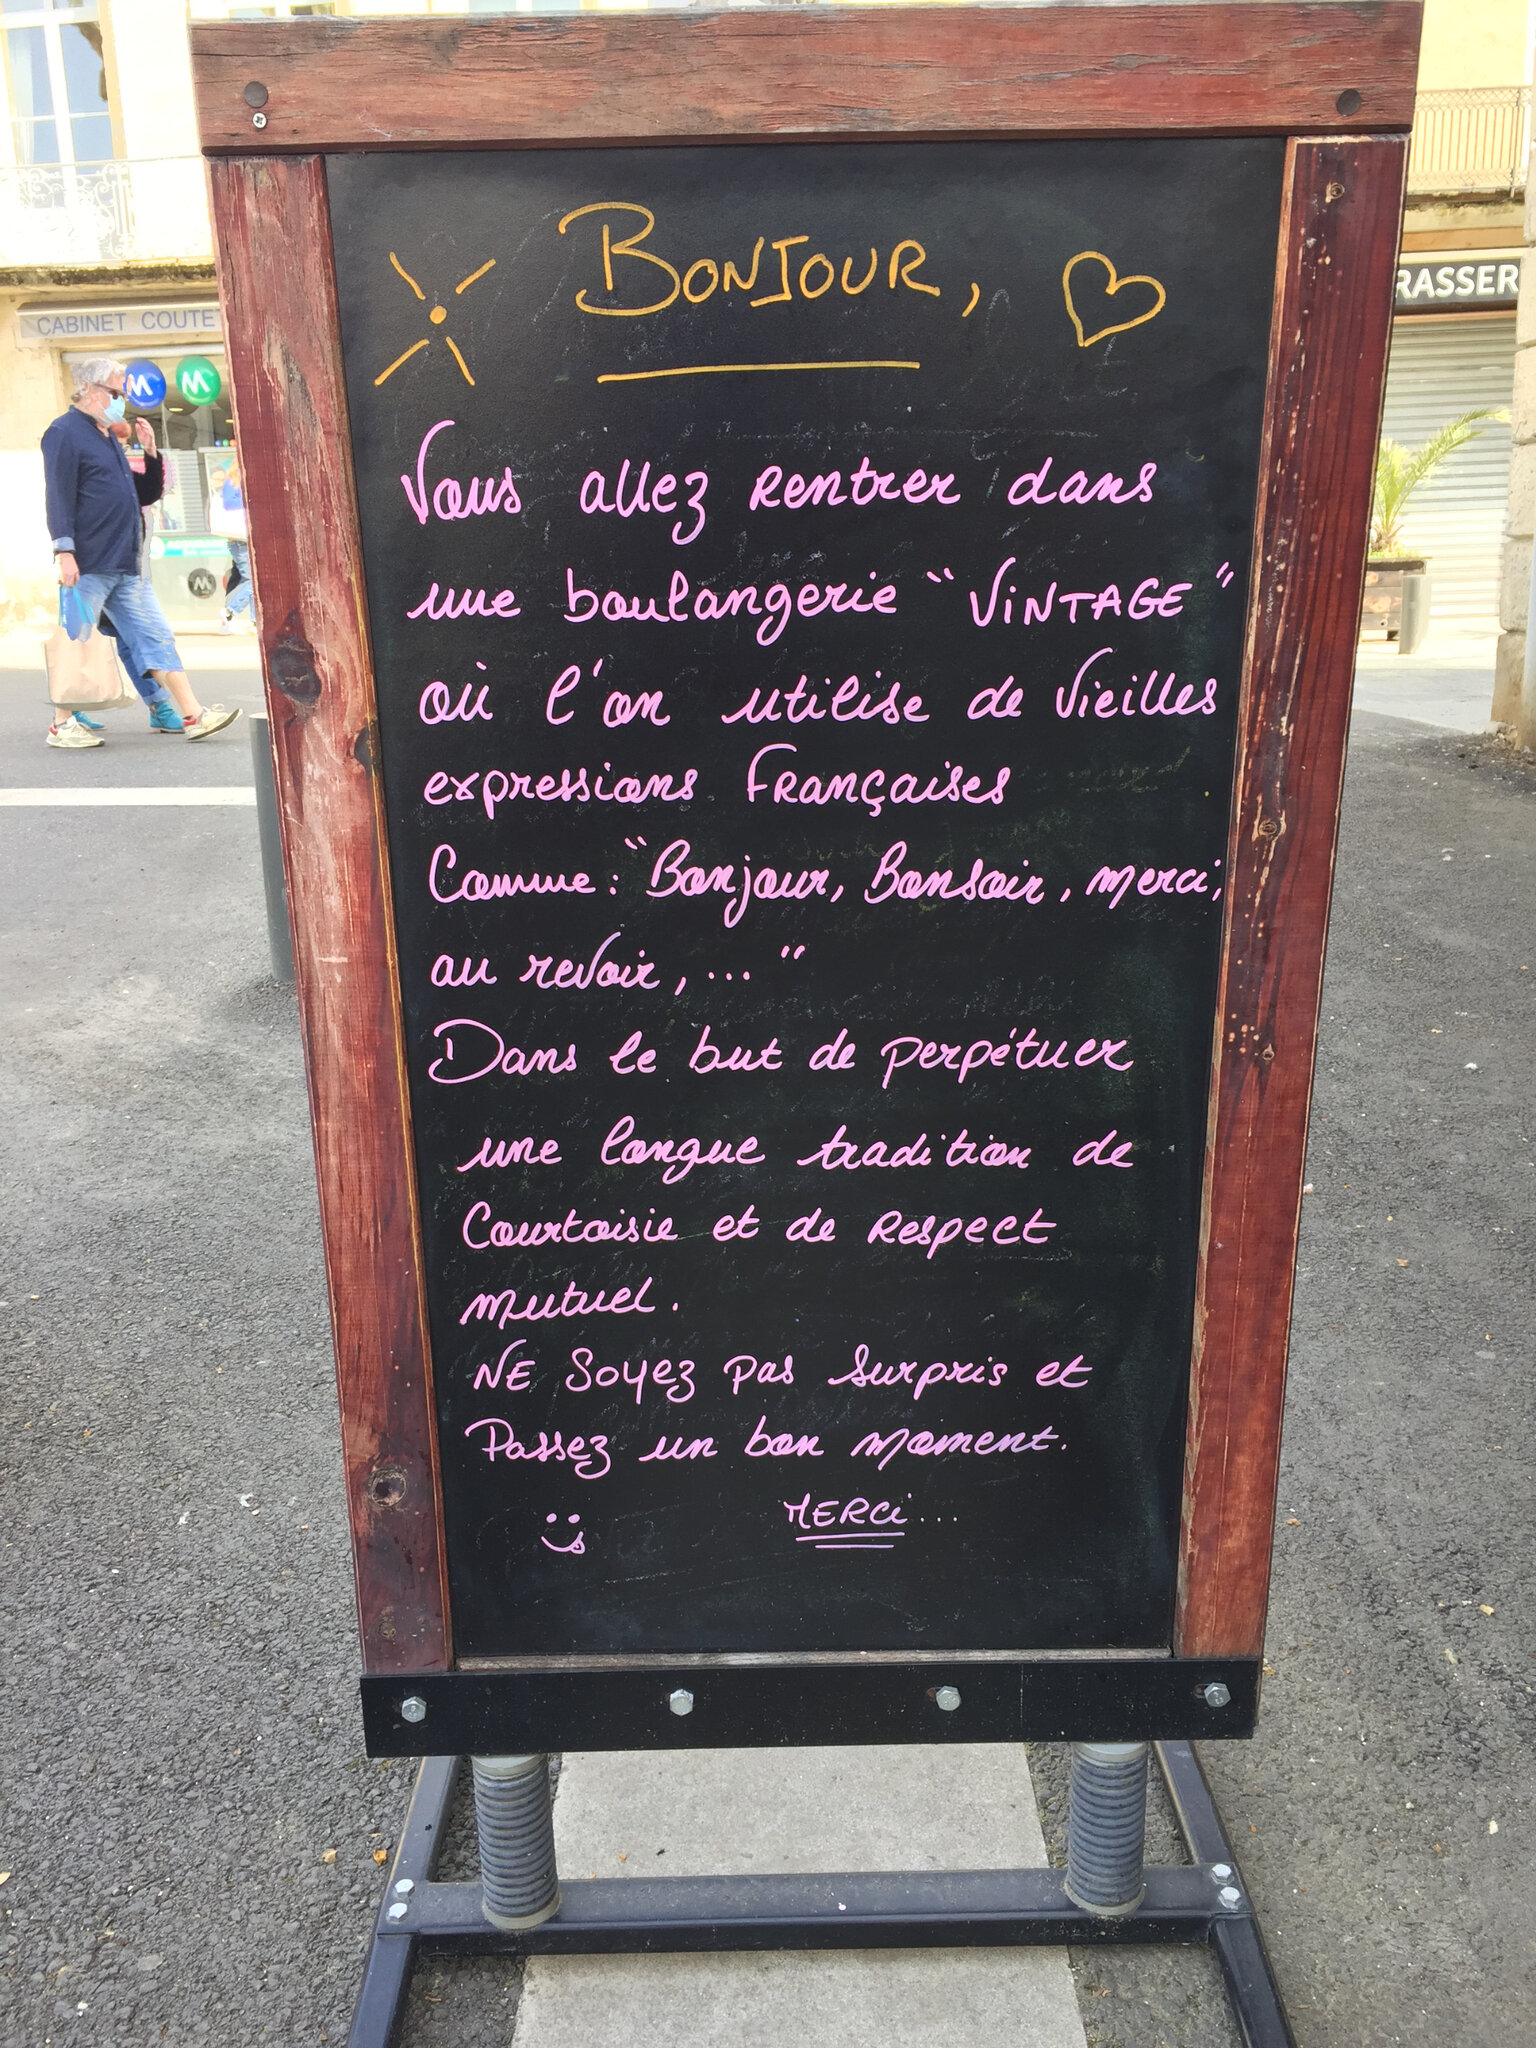 BONJOUR,
Vous allez rentrer dans
une boulangerie "VINTAGE"
où l'on utilise de vieilles
expressions Françaises
Comme : "Bonjour, Bonsoir, merci,
au revoir, ... "
Dans le but de perpétuer
une longue tradition de
Courtoisie et de Respect
mutuel.
NE Soyez pas surpris et
Passez un bon moment.
MERCi ...
CABINET COUTE
RASSER
M
M
M